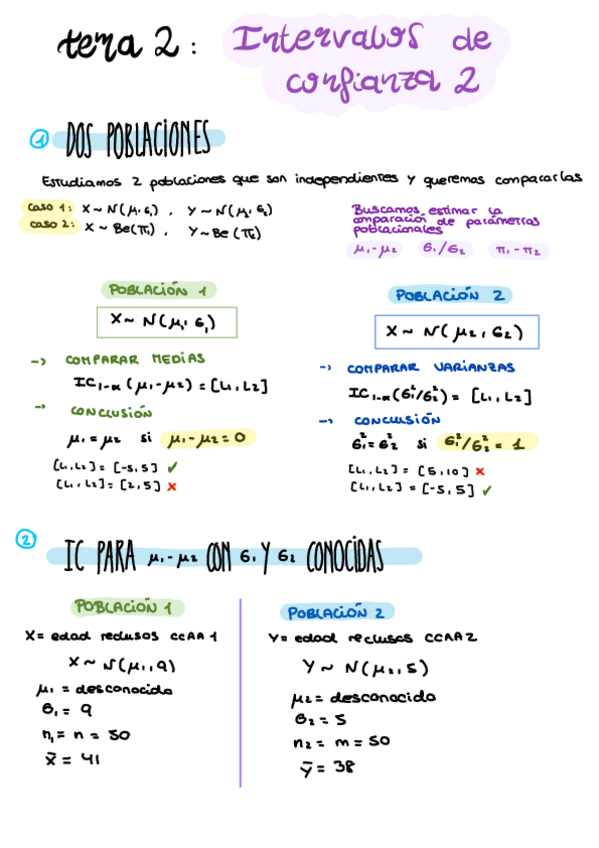 tema 2: Intervalos de
confianza 2
1 DOS POBLACIONES
Estudiamos 2 poblaciones que son independientes y queremos compararlas
caso 1: X ~ N(μ₁, σ₁), Y ~ N(μ₁, σ₂)
caso 2: X ~ Be(π₁), Y ~ Be(π₂)
Buscamos estimar la
comparación de parámetros
poblacionales
μ₁-μ₂ σ₁/σ₂ π₁-π₂
POBLACIÓN 1
X ~ N(μ₁, σ₁)
-> COMPARAR MEDIAS
IC₁₋α (μ₁-μ₂) = [L₁, L₂]
-> CONCLUSIÓN
μ₁ = μ₂ si μ₁-μ₂ = 0
[L₁, L₂] = [-5, 5] ✓
[L₁, L₂] = [2, 5] ✗
POBLACIÓN 2
X ~ N(μ₂, σ₂)
-> COMPARAR VARIANZAS
IC₁₋α (σ₁²/σ₂²) = [L₁, L₂]
-> CONCLUSIÓN
σ₁² = σ₂² si σ₁²/σ₂² = 1
[L₁, L₂] = [5, 10] ✗
[L₁, L₂] = [-5, 5] ✓
2 IC PARA μ₁-μ₂ CON σ₁ Y σ₂ CONOCIDAS
POBLACIÓN 1
X = edad reclusos CCAA 1
X ~ N(μ₁, 9)
μ₁ = desconocido
σ₁ = 9
n₁ = n = 50
x̄ = 41
POBLACIÓN 2
Y = edad reclusos CCAA 2
Y ~ N(μ₂, 5)
μ₂ = desconocido
σ₂ = 5
n₂ = m = 50
ȳ = 38